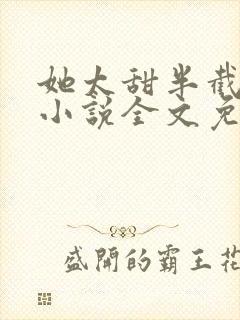 她太甜半截
小说全文免
盛開的霸王花